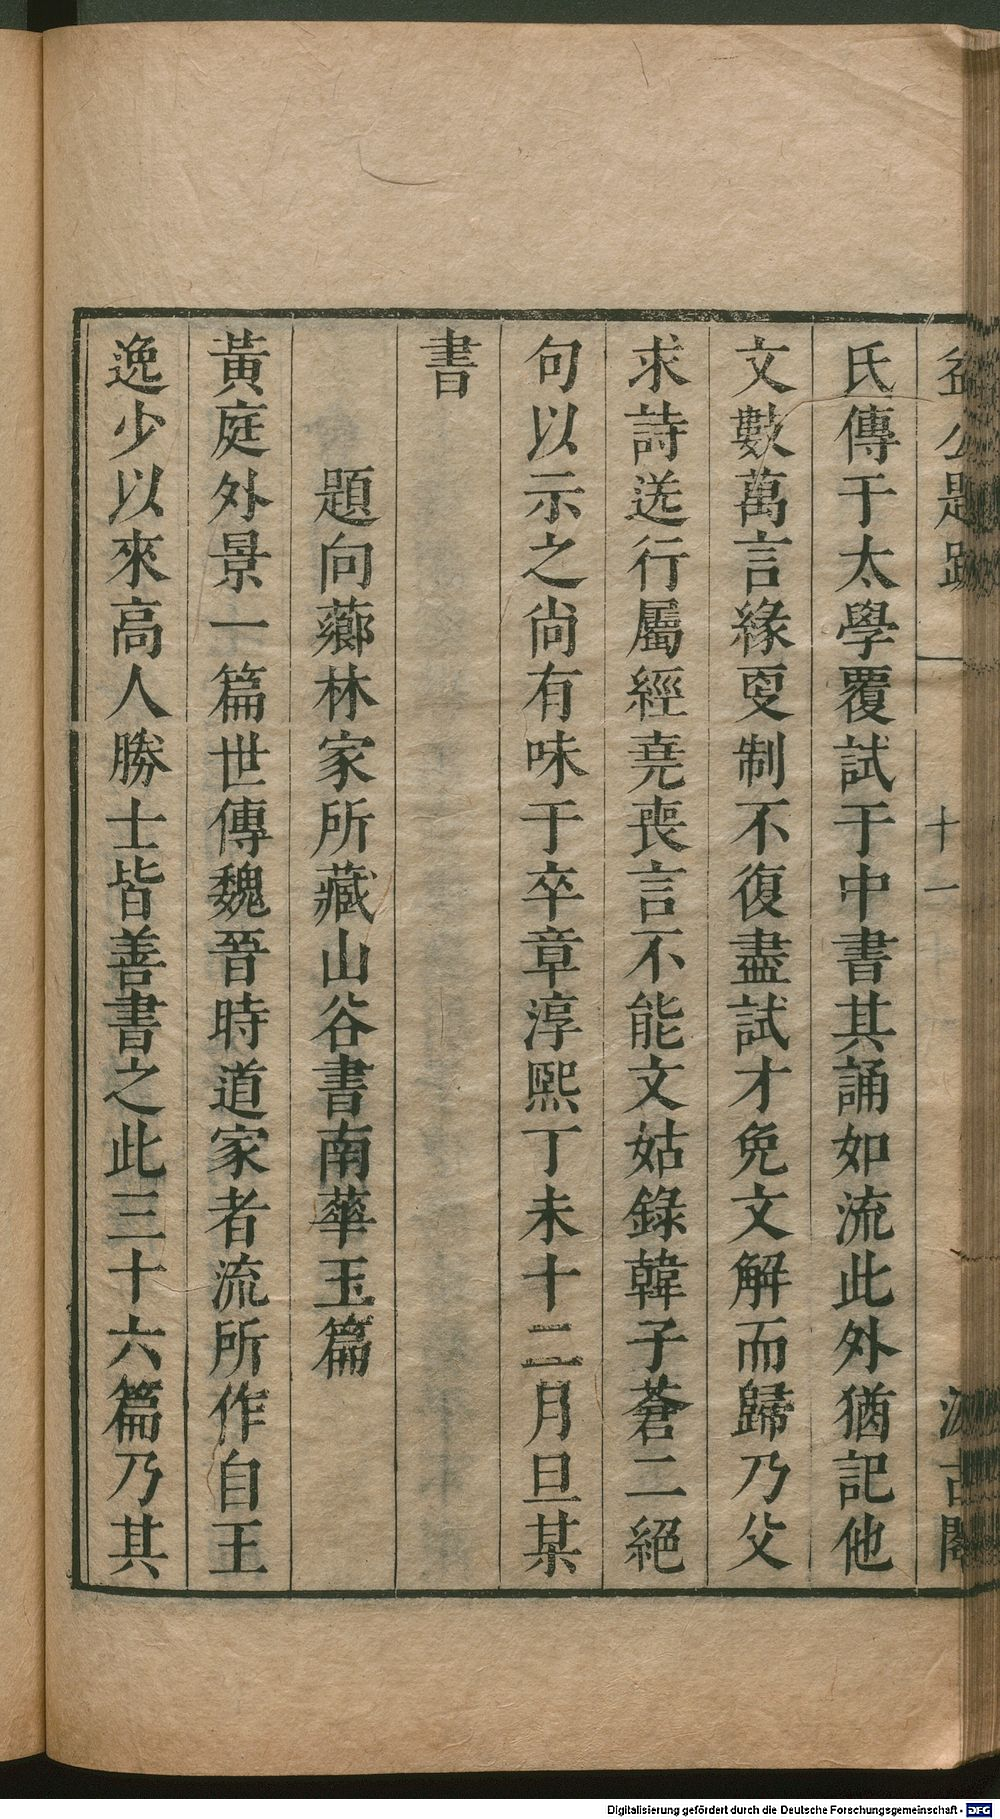 益公題跋 一 十一 汲古閣
氏傳于太學覆試于中書其誦如流此外猶記他
文數萬言緣更制不復盡試才免文解而歸乃父
求詩送行屬經堯喪言不能文姑錄韓子蒼二絕
句以示之尚有味于卒章淳熙丁未十二月旦某
書
題向薌林家所藏山谷書南華玉篇
黃庭外景一篇世傳魏晉時道家者流所作自王
逸少以來高人勝士皆善書之此三十六篇乃其
Digitalisierung gefördert durch die Deutsche Forschungsgemeinschaft - DFG